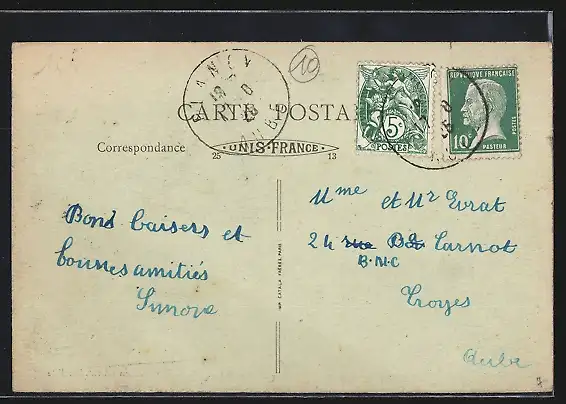 10
CARTE POSTA
5c
POSTES
REPUBLIQUE FRANÇAISE
10c
POSTES
PASTEUR
Correspondance
25 UNIS-FRANCE 13
Bons baisers et
bonnes amitiés
Simone
Mme et Mr Evrat
24 rue Bd Carnot
B.M.C
Troyes
Aube
IMP CATALA FRÈRES PARIS